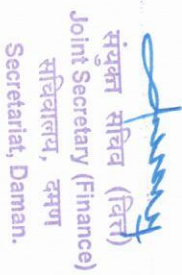 संयुक्त सचिव (वित्त)
Joint Secretary (Finance)
सचिवालय, दमण
Secretariat, Daman.